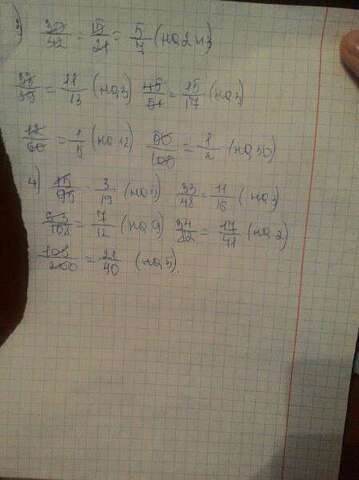 3) 30/42 = 15/21 = 5/7 (на 2 и 3
33/39 = 11/13 (на 3) 45/51 = 15/17 (на 3)
12/60 = 1/5 (на 12) 50/100 = 1/2 (на 50)
4) 15/95 = 3/19 (на 5) 33/48 = 11/16 (на 3)
63/108 = 7/12 (на 9) 34/82 = 17/41 (на 2)
105/200 = 21/40 (на 5).